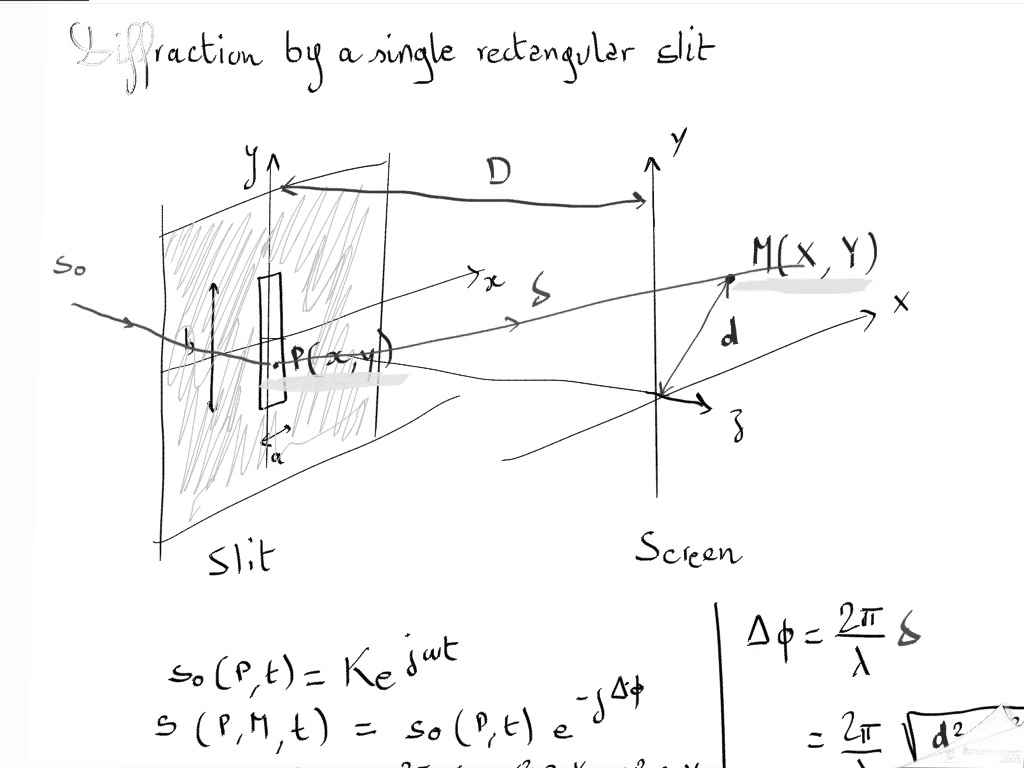 Diffraction by a single rectangular slit
y
D
Y
so
x
δ
M(X, Y)
b
P(x,y)
d
X
a
z
Slit
Screen
so(P,t) = Ke^jωt
s(P,M,t) = so(P,t) e^-jΔϕ
Δϕ = 2π/λ δ
= 2π/λ √d²